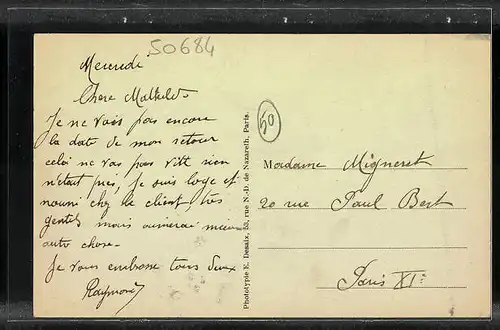 50684
Mercredi
Chère Mathilde
Je ne vois pas encore
la date de mon retour
celoi ne vas pas vitt rien
n'était près, Je suis logé et
nourri chez le client, très
gentils mais aimerai mieux
autre chose.
Je vous embrasse tous deux
Raymond
Phototypie E. Desaix, 53, rue N.-D. de Nazareth, Paris.
50
Madame Migneret
20 rue Paul Bert
Paris XIe